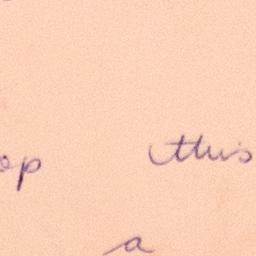 op this
a